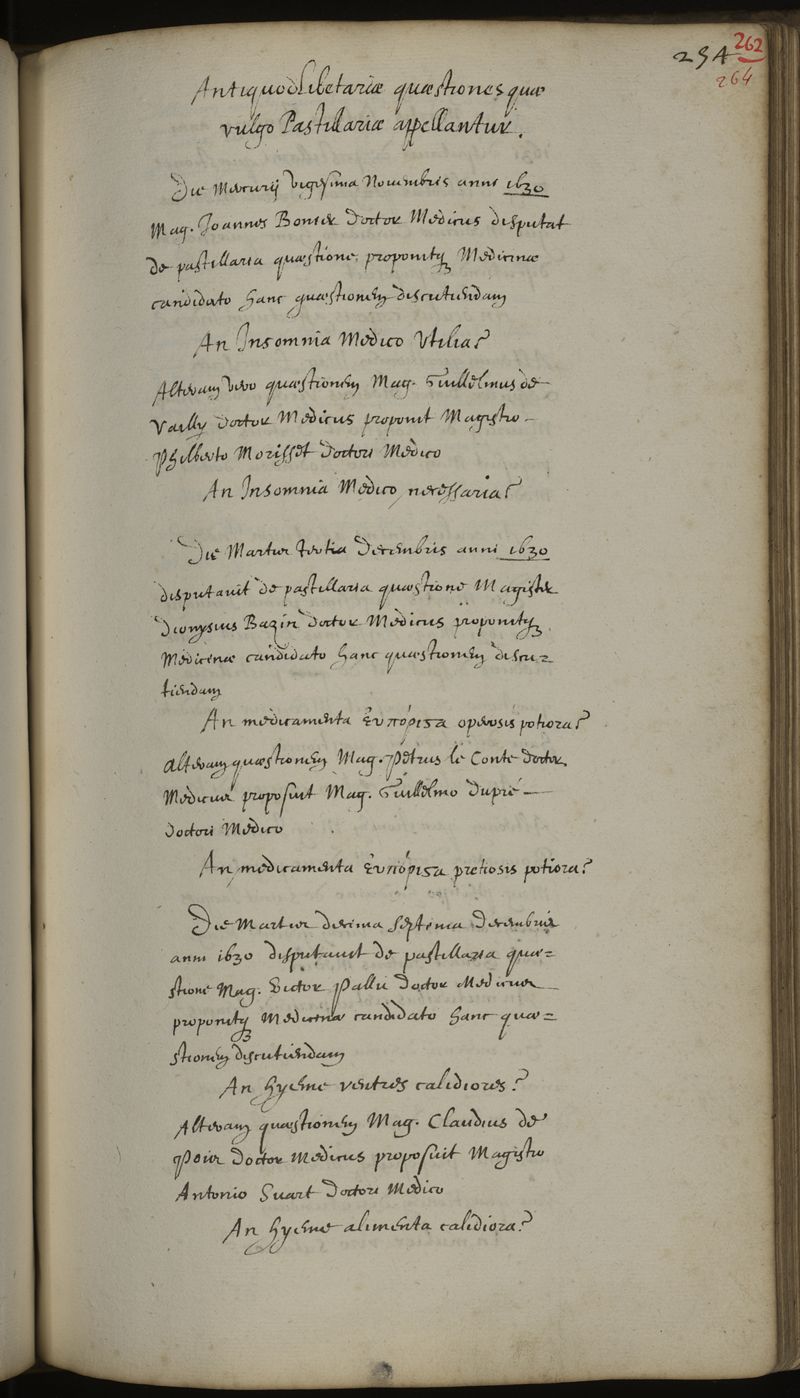 254 262
264
Antiquodlibetariæ quæstiones quæ
vulgo Pastillariæ appellantur.
Die Mercurij vigesima Novembris anni 1630
Mag. Joannes Borner Doctor Medicus disputat
de pastillaria quæstione, proponitq Medicinæ
candidato hanc quæstionem discutiendam
An Insomnia Medico Utilia?
Alteram vero quæstionem Mag. Guillelmus de
Vailly Doctor Medicus proponit Magistro
Philberto Morisset Doctori Medico
An Insomnia Medico necessaria?
Die Martis tertia Decembris anni 1630
disputavit de pastillaria quæstione Magister
Dionysius Bazin Doctor Medicus proponitq
Medicinæ candidato hanc quæstionem discu=
tiendam
An medicamenta ἐυπόριϛα operosis potiora?
Alteram quæstionem Mag. Petrus le Conte Doctor
Medicus proposuit Mag. Guillelmo Dupré
Doctori Medico
An medicamenta ἐυπόριϛα pretiosis potiora?
Die Martis decima septima Decembris
anni 1630 disputavit de pastillaria quæ=
stione Mag. Victor Pallu Doctor Medicus
proponitq Medicinæ candidato hanc quæ=
stionem discutiendam
An hyeme ventres calidiores?
Alteram quæstionem Mag. Claudius de
Doctor Medicus proposuit Magistro
Antonio Doctori Medico
An hyeme alimenta calidiora?